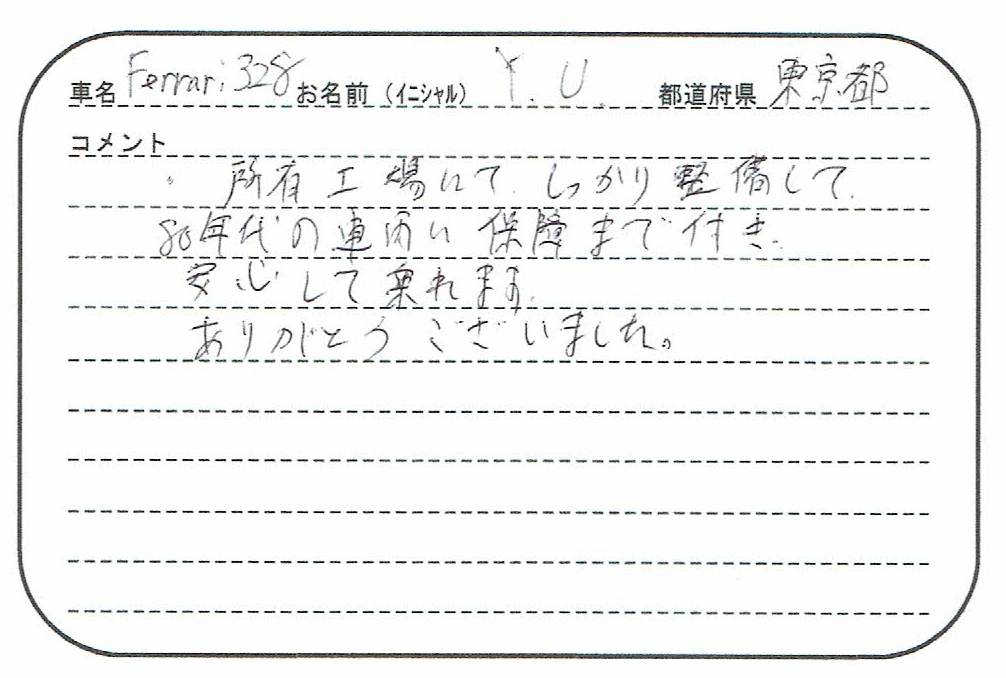 車名 Ferrari 328 お名前（イニシャル） Y. U. 都道府県 東京都
コメント
。所有工場にて、しっかり整備して、
80年代の車両に保障まで付き、
安心して乗れます。
ありがとうございました。